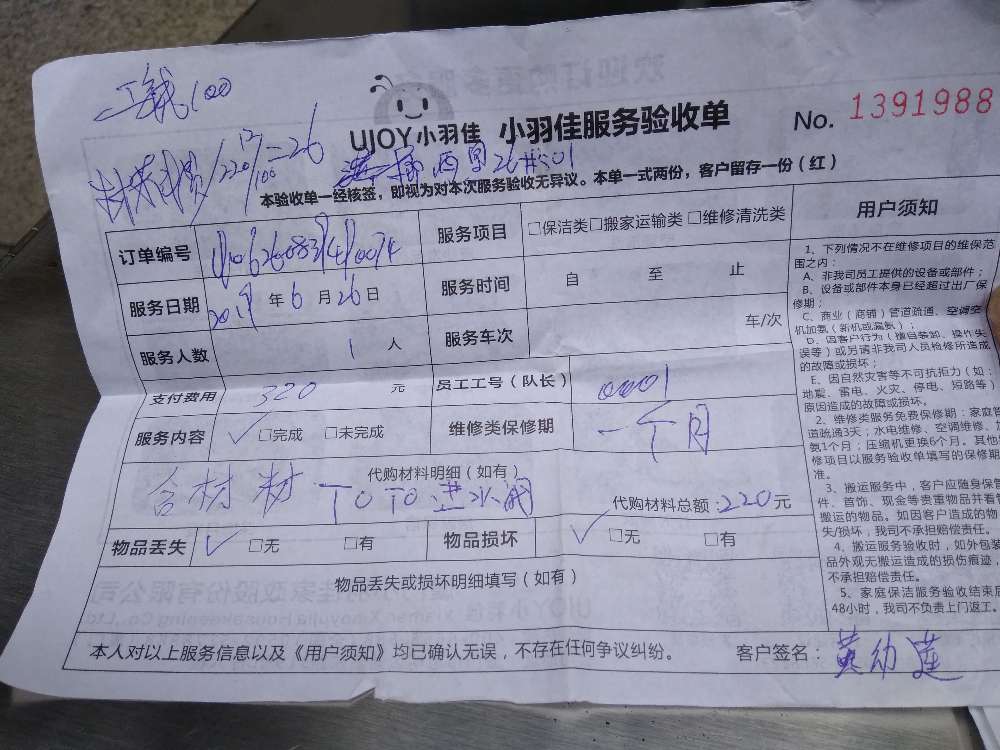 工钱100
UJOY小羽佳 小羽佳服务验收单 No. 1391988
材料费
本验收单一经核签，即视为对本次服务验收无异议。本单一式两份，客户留存一份（红）
订单编号
服务项目 □保洁类□搬家运输类 □维修清洗类
服务日期 2019年6月26日
服务时间 自 至 止
服务人数 1人
服务车次 车/次
支付费用 320 元
员工工号（队长） 0001
服务内容 ✓□完成 □未完成
维修类保修期 一个月
代购材料明细（如有）
含材料 TOTO进水阀 代购材料总额：220元
物品丢失 ✓□无 □有
物品损坏 ✓□无 □有
物品丢失或损坏明细填写（如有）
本人对以上服务信息以及《用户须知》均已确认无误，不存在任何争议纠纷。 客户签名：黄幼莲
用户须知
1、下列情况不在维修项目的维保范
围之内：
A、非我司员工提供的设备或部件；
B、设备或部件本身已经超过出厂保
修期；
C、商业（商铺）管道疏通、空调空
机加氨（新机或漏氨）；
D、因客户行为（擅自装卸、操作失
误等）或另请非我司人员检修所造成
的故障或损坏；
E、因自然灾害等不可抗拒力（如：
地震、雷电、火灾、停电、短路等）
原因造成的故障或损坏。
2、维修类服务免费保修期：家庭管
道疏通3天；水电维修、空调维修、加
氨1个月；压缩机更换6个月。其他
修项目以服务验收单填写的保修期
准。
3、搬运服务中，客户应随身保管
件、首饰、现金等贵重物品并看管
搬运的物品。如因客户造成的物品
失/损坏，我司不承担赔偿责任。
4、搬运服务验收时，如外包装
品外观无搬运造成的损伤痕迹，
不承担赔偿责任。
5、家庭保洁服务验收结束后
48小时，我司不负责上门返工。